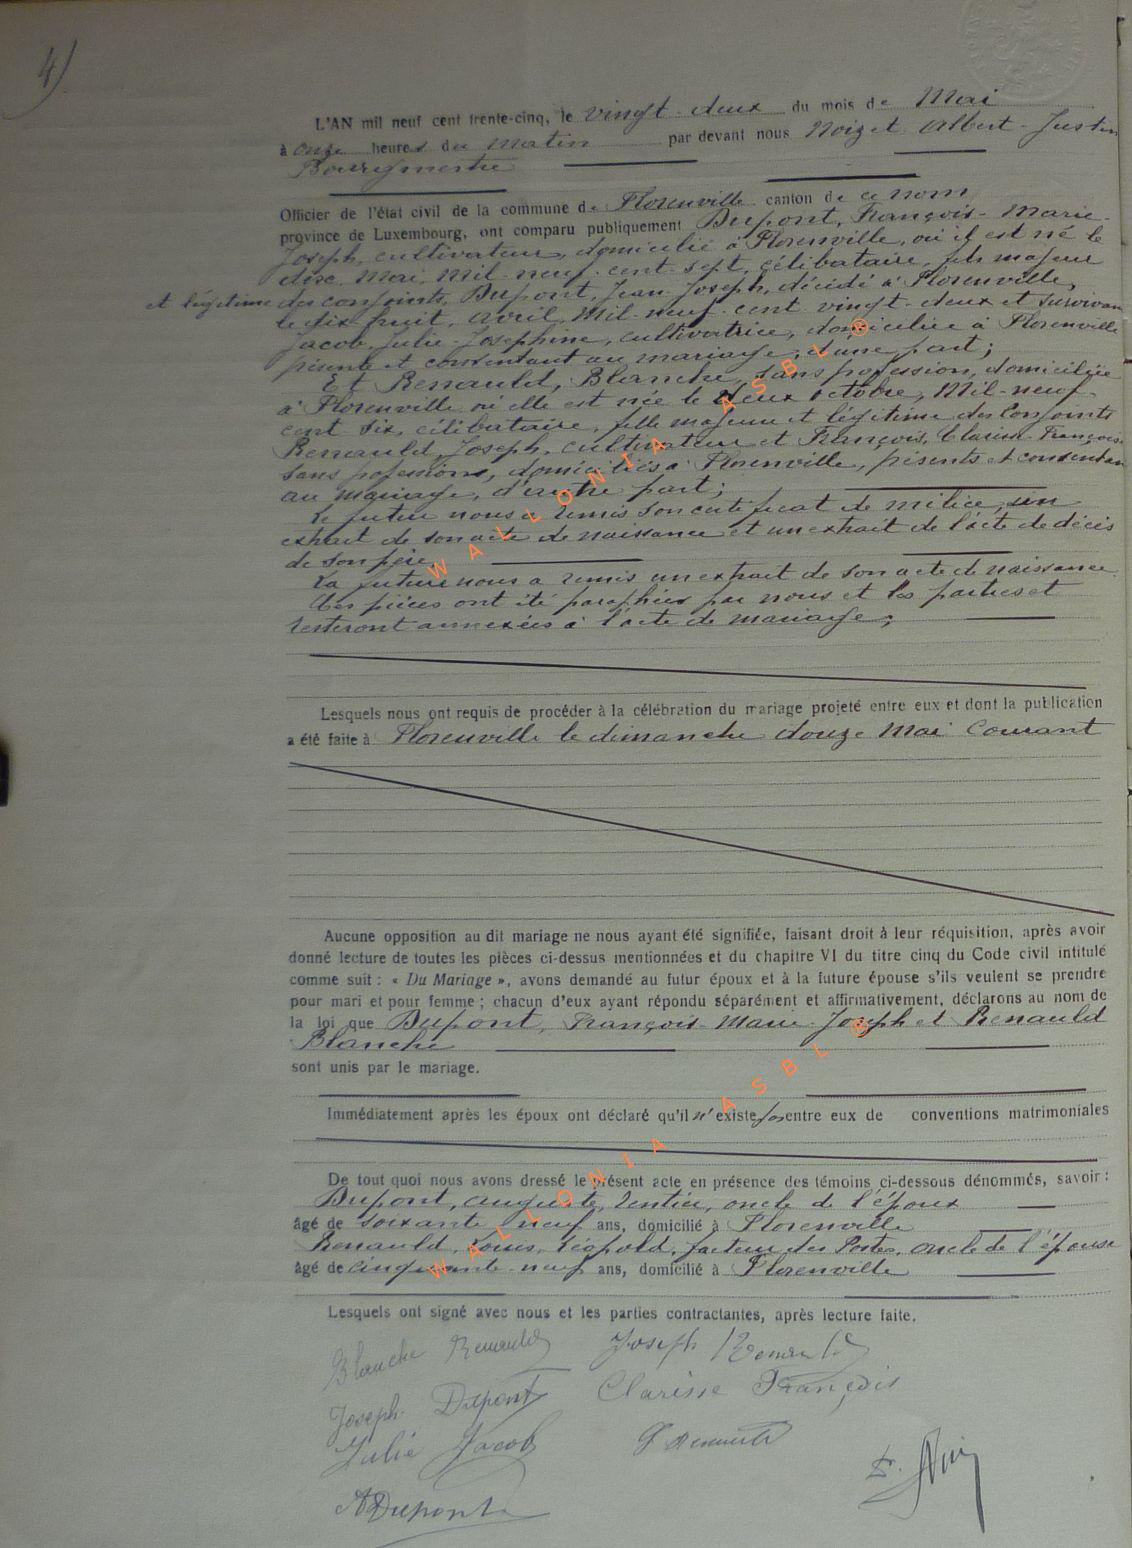 4)
L'AN mil neuf cent trente-cinq, le vingt-deux du mois de Mai
à onze heures du matin par devant nous Noizet Albert-Justin
Bourgmestre
Officier de l'état civil de la commune de Florenville canton de ce nom
province de Luxembourg, ont comparu publiquement Dupont, François-Marie-
Joseph, cultivateur, domicilié à Florenville, où il est né le
dix Mai, Mil-neuf-cent-sept, célibataire, fils majeur
et légitime des conjoints, Dupont, Jean-Joseph, décédé à Florenville,
le dix-huit, avril, Mil-neuf-cent vingt-deux et survivan
Jacob, Julie-Josephine, cultivatrice, domiciliée à Florenville
présente et consentant au mariage, d'une part;
Et Renauld, Blanche, sans profession, domiciliée
à Florenville où elle est née le deux octobre, Mil-neuf-
cent-six, célibataire, fille majeure et légitime des conjoints
Renauld, Joseph, cultivateur et François, Clarisse-François
sans professions, domiciliés à Florenville, présents et consentan
au mariage, d'autre part;
Le futur nous a remis son certificat de milice, un
extrait de son acte de naissance et un extrait de l'acte de décès
de son père
La future nous a remis un extrait de son acte de naissance
Ces pièces ont été paraphées par nous et les parties et
resteront annexées à l'acte de mariage;
Lesquels nous ont requis de procéder à la célébration du mariage projeté entre eux et dont la publication
a été faite à Florenville le dimanche douze Mai Courant
Aucune opposition au dit mariage ne nous ayant été signifiée, faisant droit à leur réquisition, après avoir
donné lecture de toutes les pièces ci-dessus mentionnées et du chapitre VI du titre cinq du Code civil intitulé
comme suit : « Du Mariage », avons demandé au futur époux et à la future épouse s'ils veulent se prendre
pour mari et pour femme ; chacun d'eux ayant répondu séparément et affirmativement, déclarons au nom de
la loi que Dupont, François-Marie-Joseph et Renauld
Blanche
sont unis par le mariage.
Immédiatement après les époux ont déclaré qu'il n'existe pas entre eux de conventions matrimoniales
De tout quoi nous avons dressé le présent acte en présence des témoins ci-dessous dénommés, savoir :
Dupont, Auguste, rentier, oncle de l'époux
âgé de soixante-neuf ans, domicilié à Florenville
Renauld, Louis, Léopold, facteur des Postes, oncle de l'épouse
âgé de cinquante-neuf ans, domicilié à Florenville
Lesquels ont signé avec nous et les parties contractantes, après lecture faite.
Blanche Renauld Joseph Renauld
Joseph Dupont Clarisse François
Julie Jacob
ADupont
WALLONIA ASBL ®
WALLONIA ASBL ®